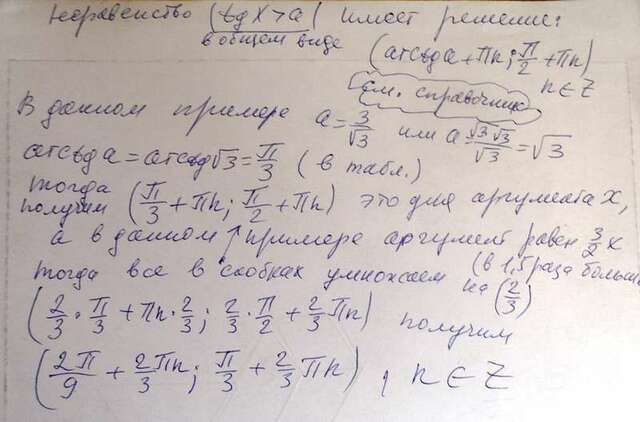 Неравенство (tg x > a) имеет решение:
в общем виде (arctg a + πn; π/2 + πn)
n ∈ Z
см. справочник
В данном примере a = 3/√3 или a √3√3/√3 = √3
arctg a = arctg √3 = π/3 (в табл.)
тогда
получим (π/3 + πn; π/2 + πn) это для аргумента x,
а в данном примере аргумент равен 3/2 x
(в 1,5 раза больш
тогда все в скобках умножаем на (2/3)
(2/3 · π/3 + πn · 2/3; 2/3 · π/2 + 2/3 πn) получим
(2π/9 + 2/3 πn; π/3 + 2/3 πn), n ∈ Z